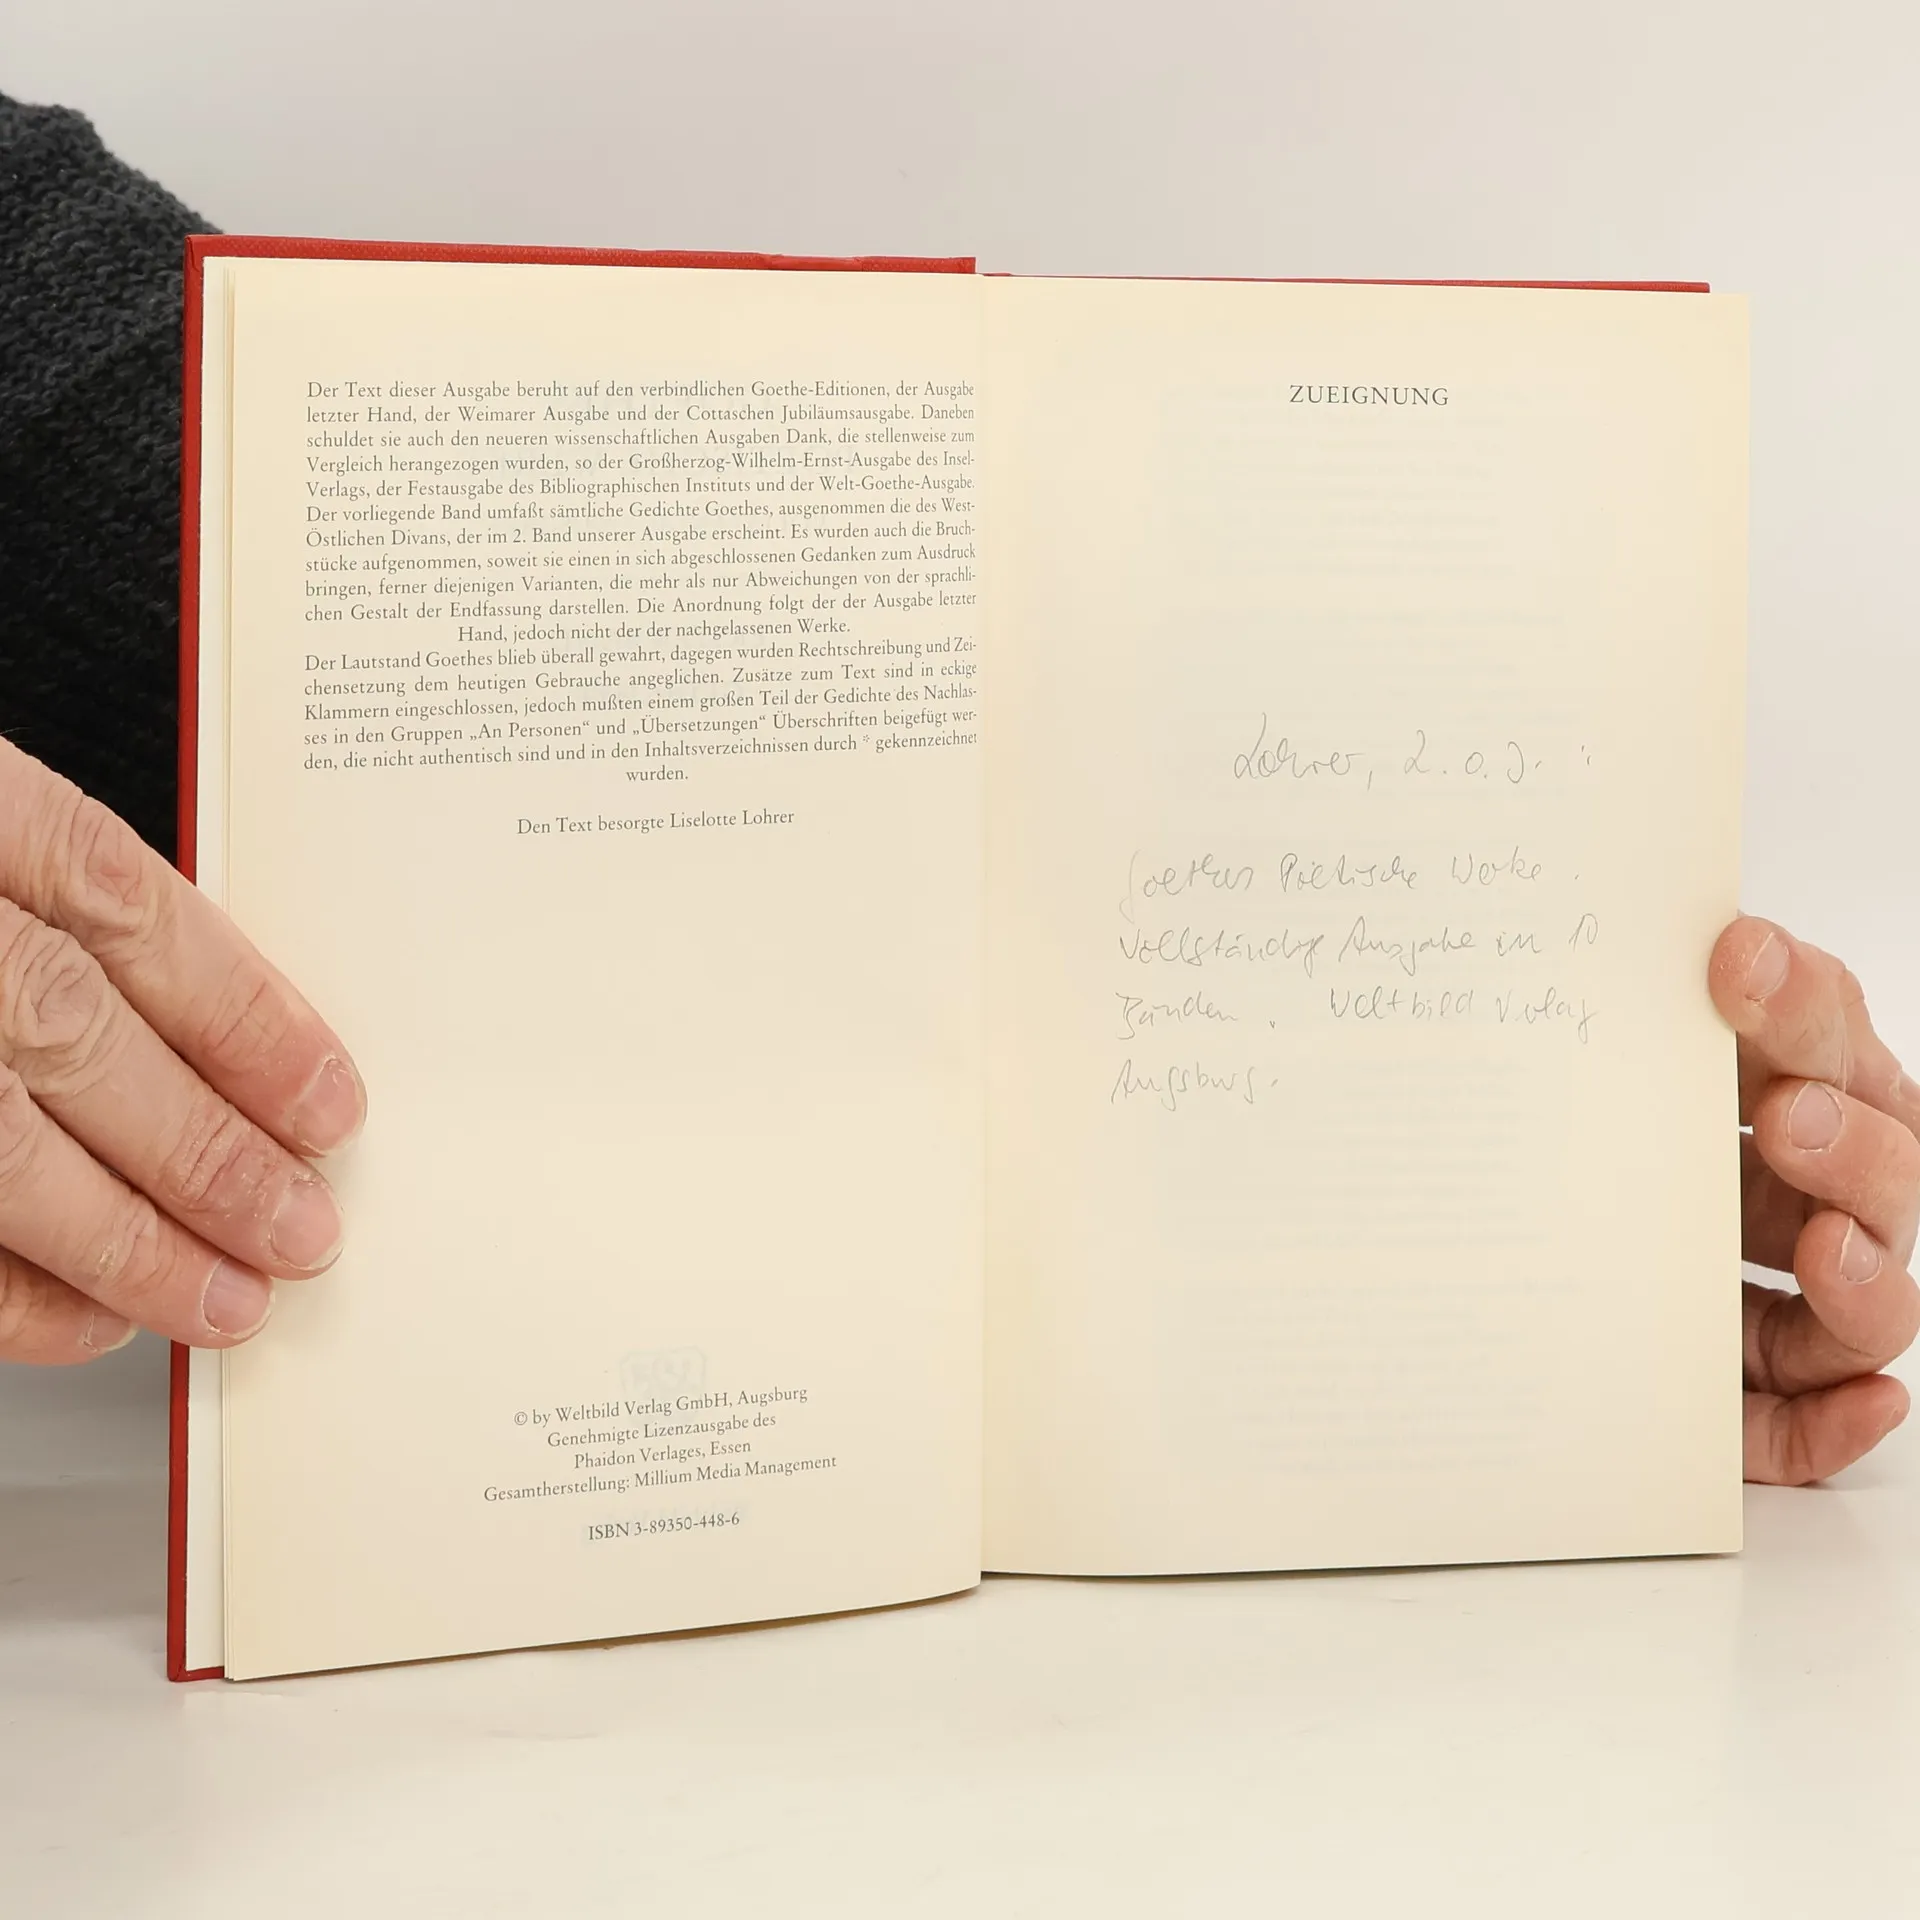 Der Text dieser Ausgabe beruht auf den verbindlichen Goethe-Editionen, der Ausgabe
letzter Hand, der Weimarer Ausgabe und der Cottaschen Jubiläumsausgabe. Daneben
schuldet sie auch den neueren wissenschaftlichen Ausgaben Dank, die stellenweise zum
Vergleich herangezogen wurden, so der Großherzog-Wilhelm-Ernst-Ausgabe des Insel-
Verlags, der Festausgabe des Bibliographischen Instituts und der Welt-Goethe-Ausgabe.
Der vorliegende Band umfaßt sämtliche Gedichte Goethes, ausgenommen die des West-
Östlichen Divans, der im 2. Band unserer Ausgabe erscheint. Es wurden auch die Bruch-
stücke aufgenommen, soweit sie einen in sich abgeschlossenen Gedanken zum Ausdruck
bringen, ferner diejenigen Varianten, die mehr als nur Abweichungen von der sprachli-
chen Gestalt der Endfassung darstellen. Die Anordnung folgt der der Ausgabe letzter
Hand, jedoch nicht der der nachgelassenen Werke.
Der Lautstand Goethes blieb überall gewahrt, dagegen wurden Rechtschreibung und Zei-
chensetzung dem heutigen Gebrauche angeglichen. Zusätze zum Text sind in eckige
Klammern eingeschlossen, jedoch mußten einem großen Teil der Gedichte des Nachlas-
ses in den Gruppen „An Personen“ und „Übersetzungen“ Überschriften beigefügt wer-
den, die nicht authentisch sind und in den Inhaltsverzeichnissen durch * gekennzeichnet
wurden.
Den Text besorgte Liselotte Lohrer
© by Weltbild Verlag GmbH, Augsburg
Genehmigte Lizenzausgabe des
Phaidon Verlages, Essen
Gesamtherstellung: Millium Media Management
ISBN 3-89350-448-6
ZUEIGNUNG
Lohrer, L. o. J. :
Goethes Poetische Werke.
Vollständige Ausgabe in 10
Bänden. Weltbild Verlag
Augsburg.